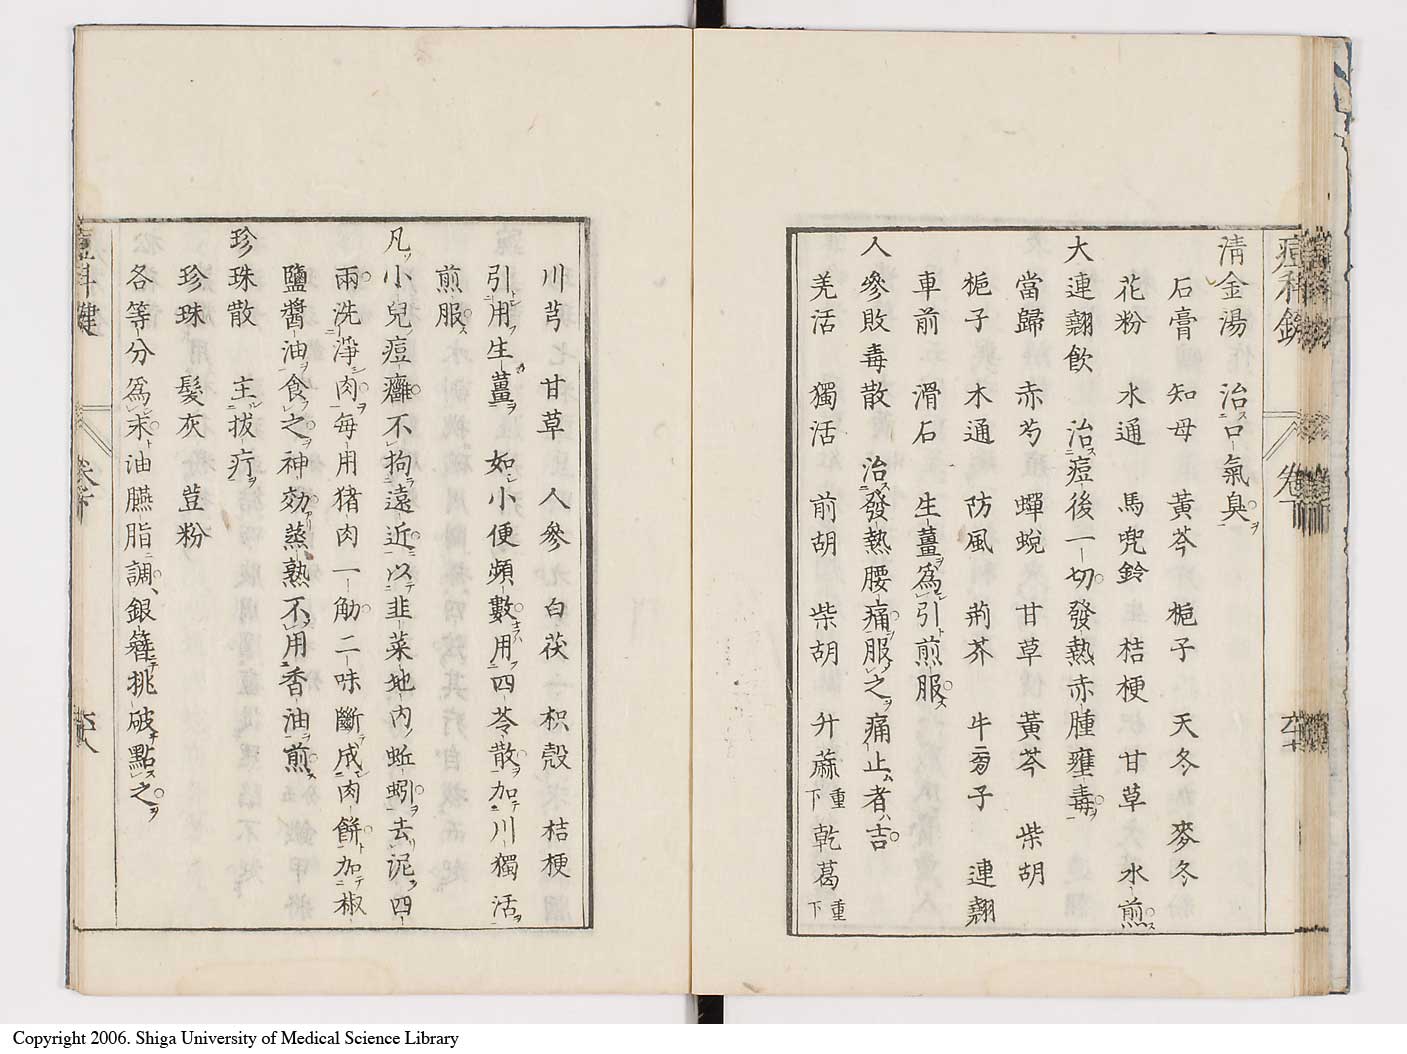 清金湯 治口氣臭
石膏 知母 黃芩 梔子 天冬 麥冬
花粉 水通 馬兜鈴 桔梗 甘草 水煎
大連翹飲 治痘後一切發熱赤腫壅毒
當歸 赤芍 蟬蛻 甘草 黃芩 柴胡
梔子 木通 防風 荊芥 牛蒡子 連翹
車前 滑石 生薑爲引煎服
人參敗毒散 治發熱腰痛服之痛止者吉
羌活 獨活 前胡 柴胡 升蔴下重 乾葛下重
川芎 甘草 人參 白茯 枳殼 桔梗
引用生薑 如小便頻數用四苓散加川獨活
煎服
凡小兒痘癰不拘遠近以韭菜地内蚯蚓去泥四
兩洗淨肉每用猪肉一觔二味斷成肉餅加椒
鹽醬油食之神効蒸熟不用香油煎
珍珠散 主拔疔
珍珠 髮灰 荳粉
各等分爲末油臙脂調銀簪挑破點之
痘科鍵 卷下
Copyright 2006. Shiga University of Medical Science Library